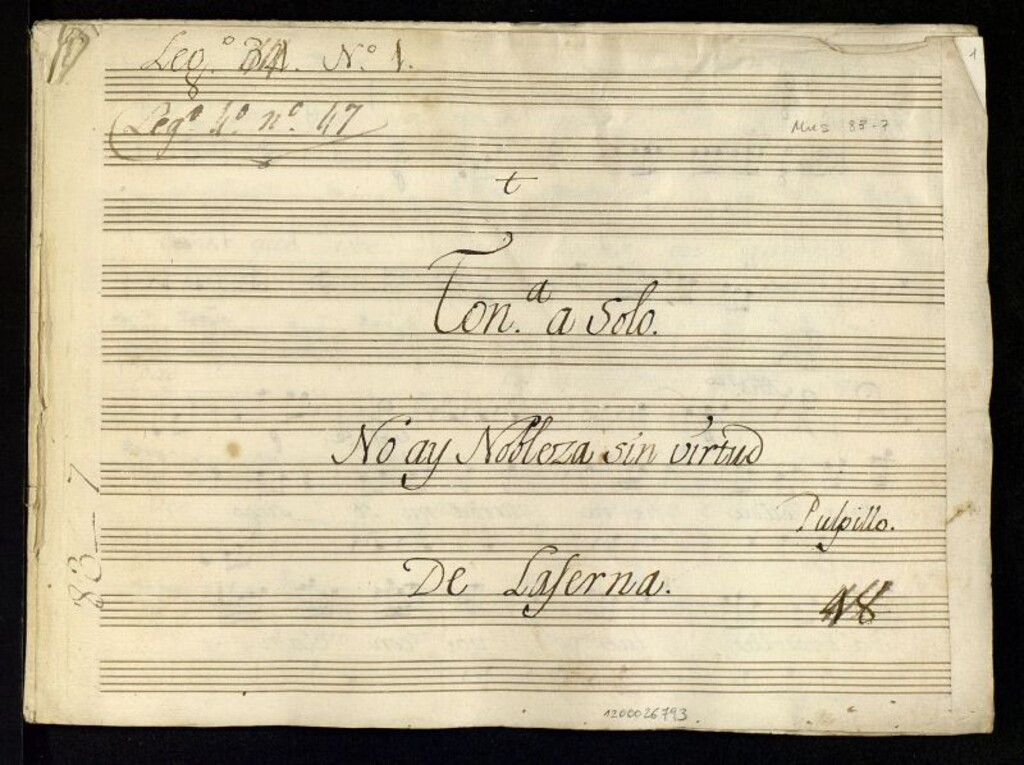 Leg.º 34. N.º 1.
1
Leg.º 4.º n.º 47
Mus 83-7
t
Ton.a a Solo.
No ay Nobleza sin virtud
Pulpillo.
83-7
De Laserna.
48
1200026793